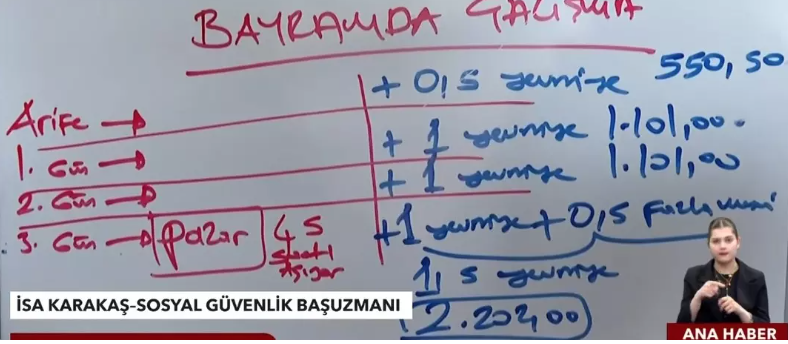 BAYRAMDA ÇALIŞMA
+ 0,5 yevmiye 550,50
Arife →
+ 1 yevmiye 1.101,00.
1. Gün →
+ 1 yevmiye 1.101,00
2. Gün →
+1 yevmiye + 0,5 Fazla mesai
3. Gün → Pazar 45
saati
Aşıyor
1,5 yevmiye
2.202,00
İSA KARAKAŞ-SOSYAL GÜVENLİK BAŞUZMANI
ANA HABER